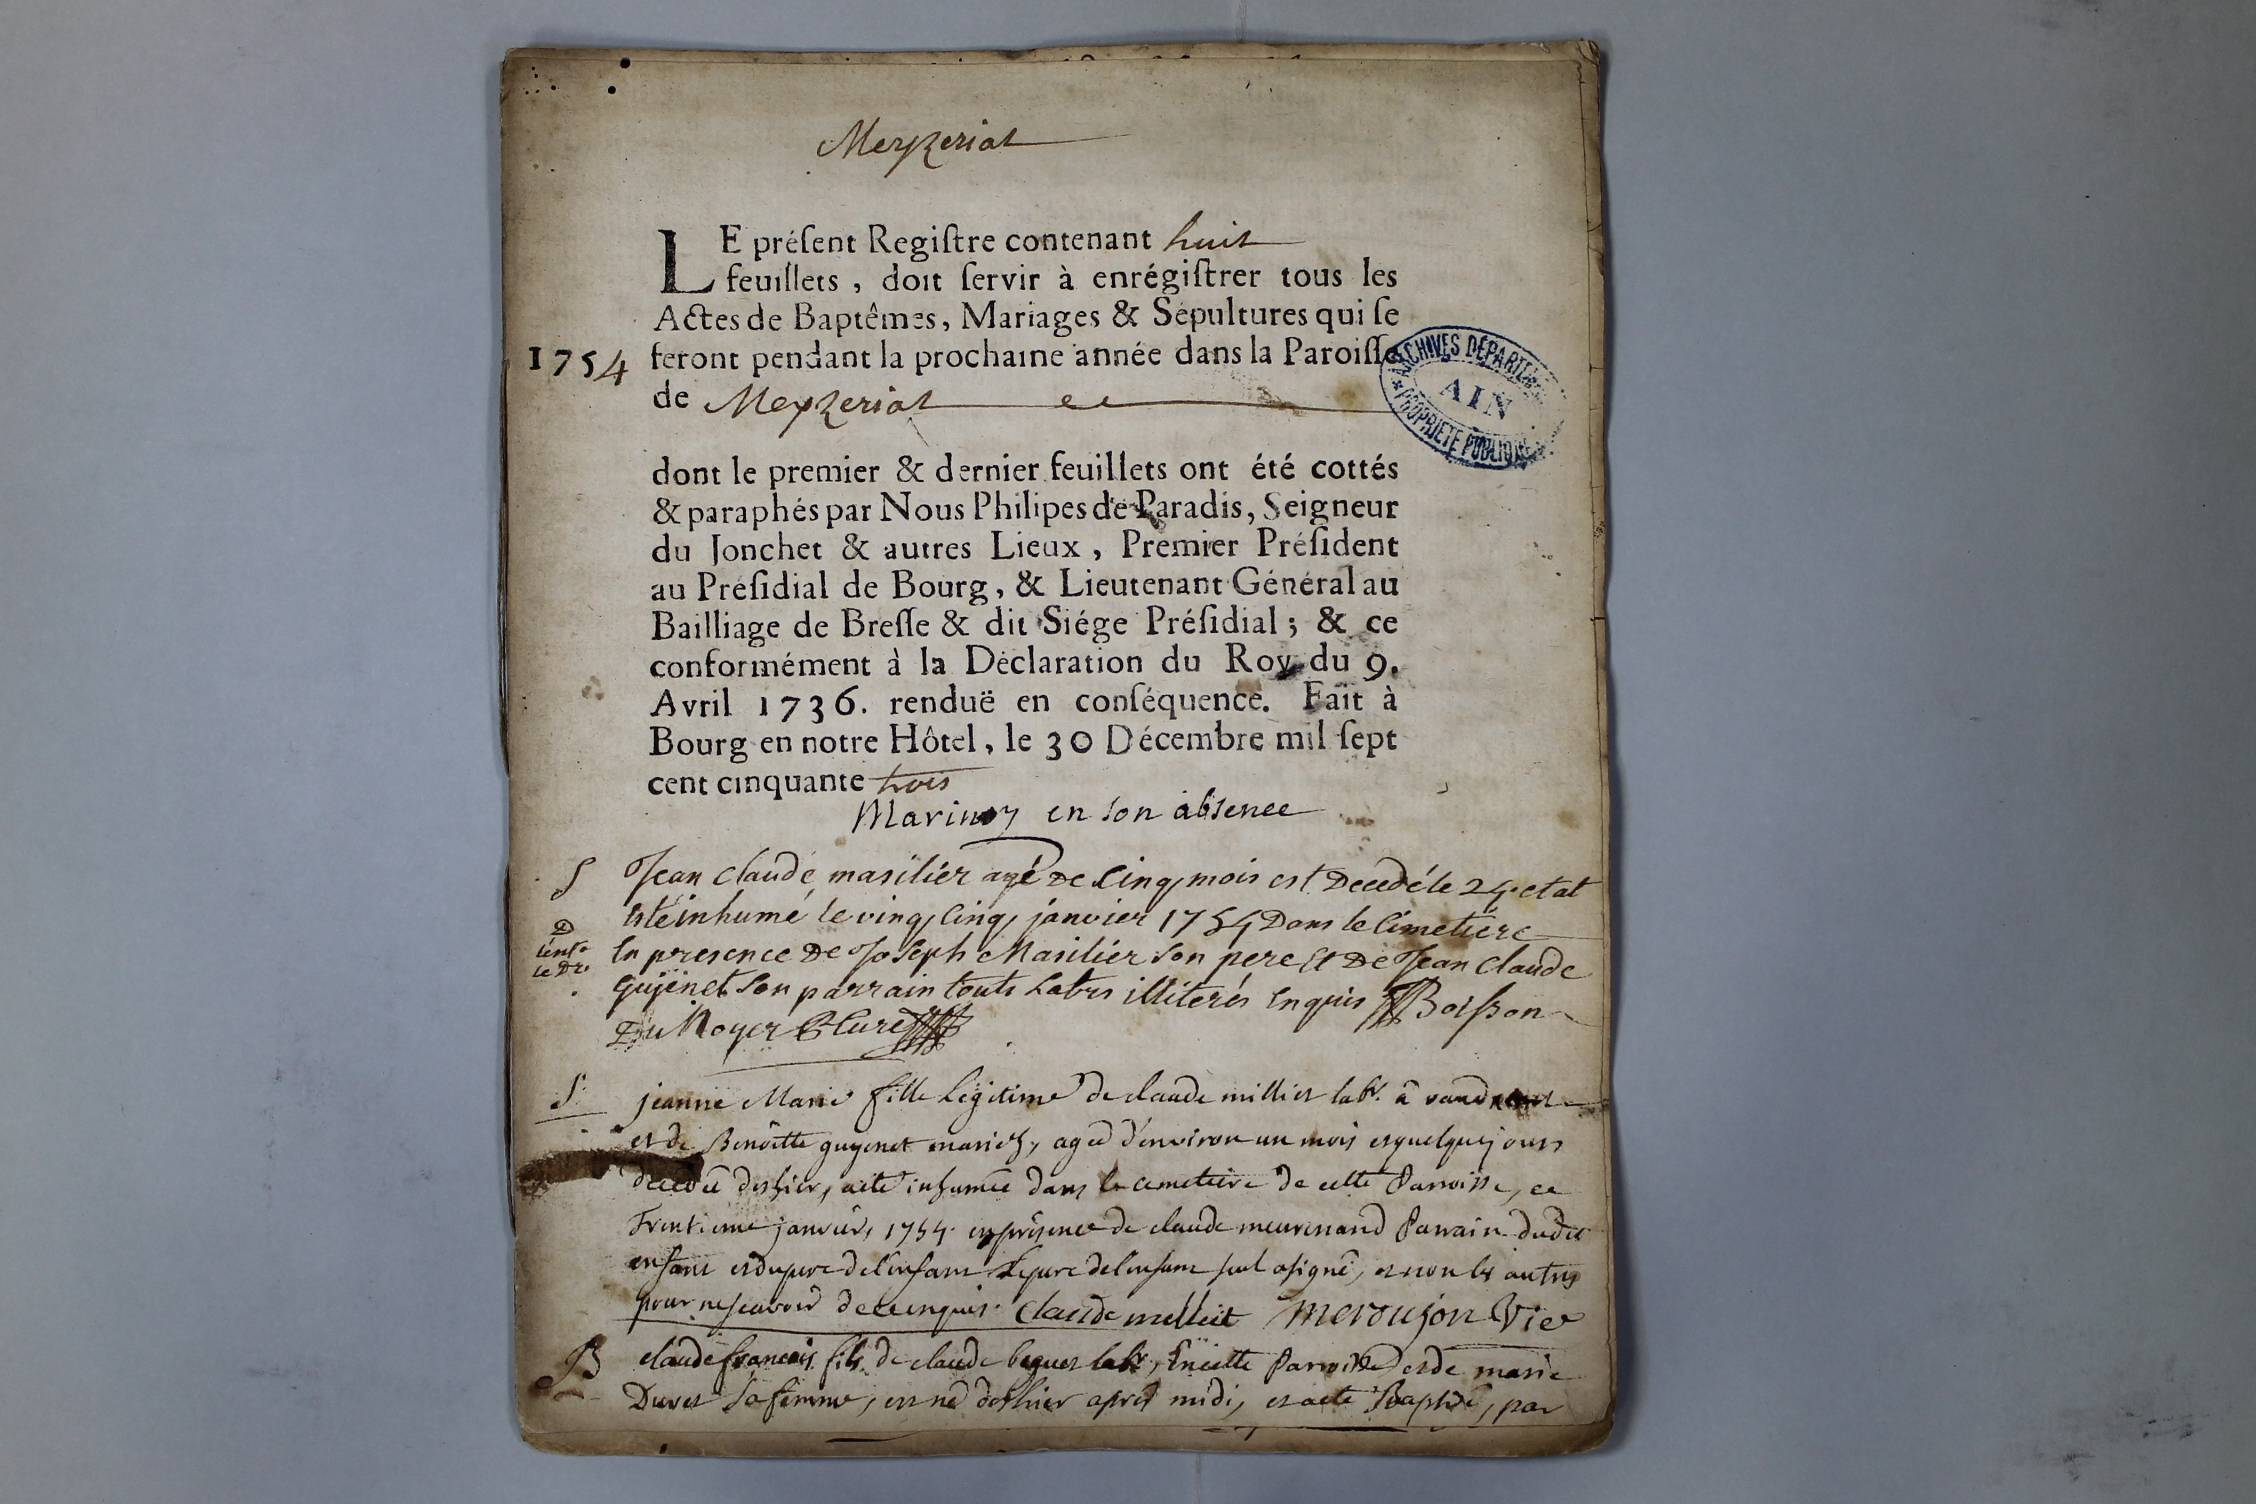 Meyzeriat
LE préſent Regiſtre contenant huit
feuillets, doit ſervir à enrégiſtrer tous les
Actes de Baptêmes, Mariages & Sépultures qui ſe
1754 feront pendant la prochaine année dans la Paroiſſe
de Meyzeriat
ARCHIVES DÉPARTEM
AIN
PROPRIÉTÉ PUBLIQUE
dont le premier & dernier feuillets ont été cottés
& paraphés par Nous Philipes de Paradis, Seigneur
du Jonchet & autres Lieux, Premier Préſident
au Préſidial de Bourg, & Lieutenant Général au
Bailliage de Breſſe & dit Siége Préſidial; & ce
conformément à la Déclaration du Roy du 9.
Avril 1736. renduë en conſéquence. Fait à
Bourg en notre Hôtel, le 30 Décembre mil ſept
cent cinquante trois
en son absence
S Jean claude masilier agé De Cinq mois est Decedé le 24. et at
esté inhumé le vingt Cinq janvier 1754 Dans le Cimetiere
En presence De Joseph Masilier son pere Et De Jean claude
Gujenet son parrain touts Labrs illiterés Enquis Boisson
Du Noyer Curé
S. jeanne Marie fille Legitime de claude milliet labr. à
et de Benoitte guyenet mariez, agée d'environ un mois et quelques jours
decedée dès hier, a eté inhumée dans le cemetiere de cette Parroisse, ce
Trentieme janvier, 1754. en présence de claude meurenand Parrain dudit
enfant et du pere de l'enfant Le pere de l'enfant seul a signé, et non les autres
pour ne scavoir de ce enquis. Claude millieit meroujon Vic
B claude francois fils de claude beguet labr, En cette Parroisse et de marie
Duret sa femme, est né dès hier après midi, et a eté Baptisé, par